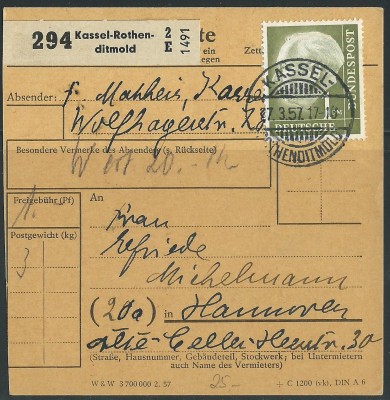 294 Kassel-Rothen-
ditmold
2
E
1491
te
ein
legen
Zett
BUNDESPOST
DEUTSCHE
KASSEL-
27.3.57.17-18
ROTHENDITMOLD
Absender: Kassel
Wolfhagerstr.
Besondere Vermerke des Absenders (s. Rückseite)
Wert 20.-
Freigebühr (Pf)
1.-
Postgewicht (kg)
3
An
Frau
Elfriede
Michelmann
(20a) Hannover
Alte-Celler-Heerstr. 30
(Straße, Hausnummer, Gebäudeteil, Stockwerk; bei Untermietern
auch Name des Vermieters)
W & W 3 700 000 2. 57
25.-
+ C 1200 (vk), DIN A 6